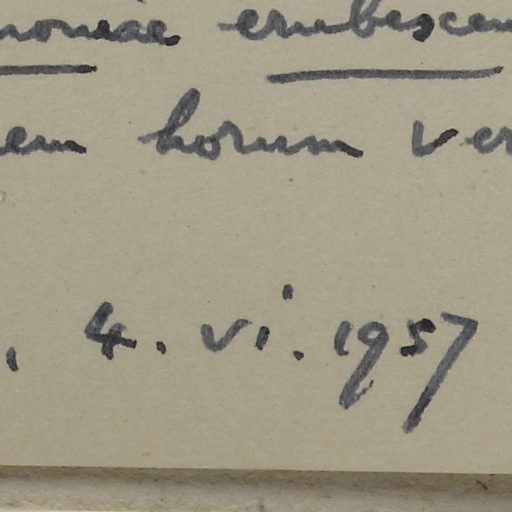 moniae erubescen
em horum ver
, 4. vi. 1957